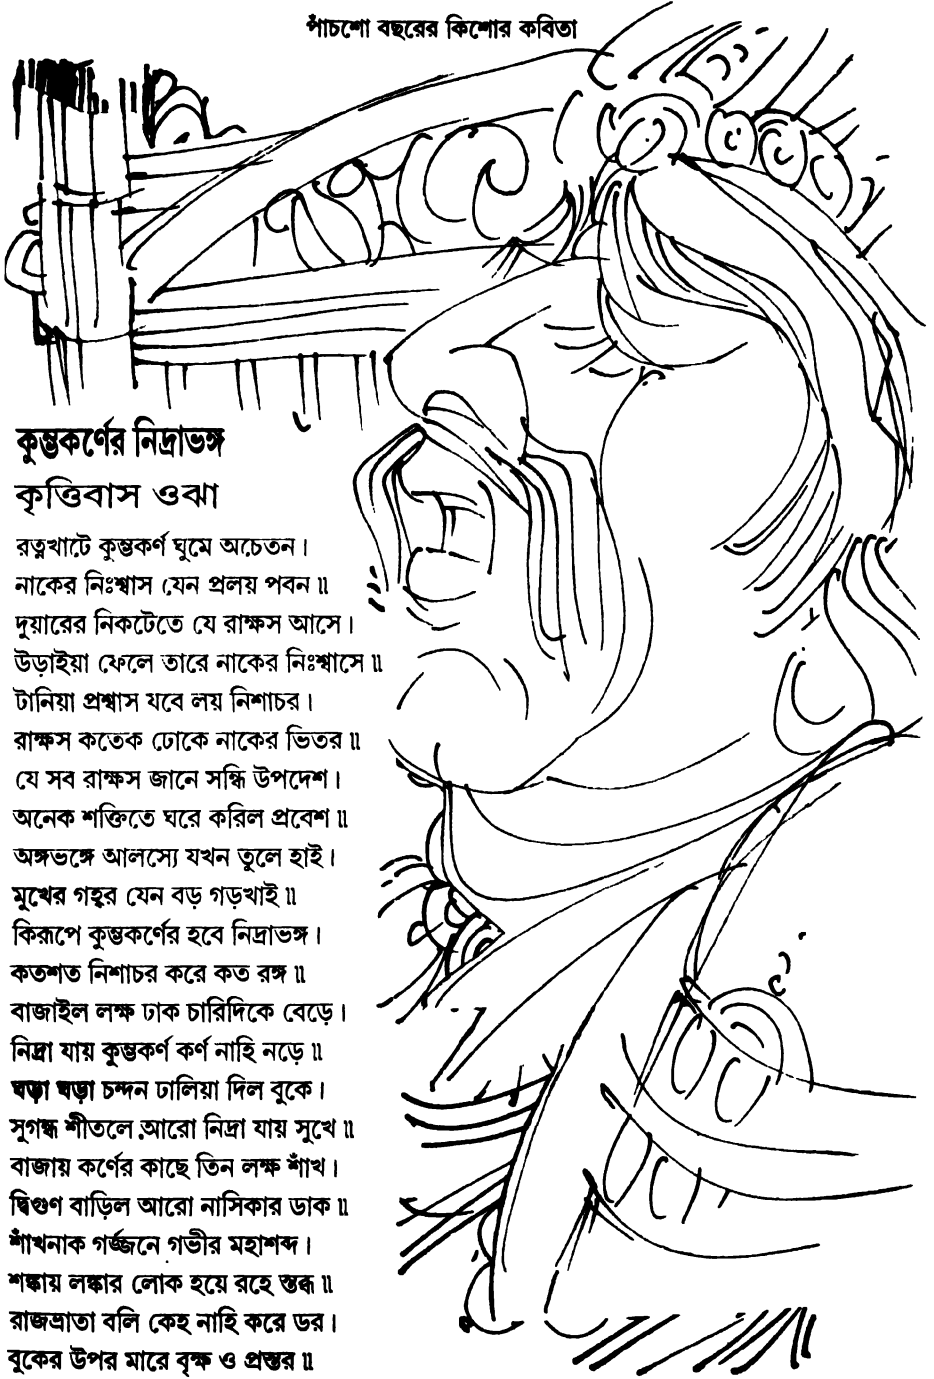 পাঁচশো বছরের কিশোর কবিতা
কুম্ভকর্ণের নিদ্রাভঙ্গ
কৃত্তিবাস ওঝা
রত্নখাটে কুম্ভকর্ণ ঘুমে অচেতন।
নাকের নিঃশ্বাস যেন প্রলয় পবন॥
দুয়ারের নিকটেতে যে রাক্ষস আসে।
উড়াইয়া ফেলে তারে নাকের নিঃশ্বাসে॥
টানিয়া প্রশ্বাস যবে লয় নিশাচর।
রাক্ষস কতেক ঢোকে নাকের ভিতর॥
যে সব রাক্ষস জানে সন্ধি উপদেশ।
অনেক শক্তিতে ঘরে করিল প্রবেশ॥
অঙ্গভঙ্গে আলস্যে যখন তুলে হাই।
মুখের গহ্বর যেন বড় গড়খাই॥
কিরূপে কুম্ভকর্ণের হবে নিদ্রাভঙ্গ।
কতশত নিশাচর করে কত রঙ্গ॥
বাজাইল লক্ষ ঢাক চারিদিকে বেড়ে।
নিদ্রা যায় কুম্ভকর্ণ কর্ণ নাহি নড়ে॥
ঘড়া ঘড়া চন্দন ঢালিয়া দিল বুকে।
সুগন্ধ শীতলে আরো নিদ্রা যায় সুখে॥
বাজায় কর্ণের কাছে তিন লক্ষ শাঁখ।
দ্বিগুণ বাড়িল আরো নাসিকার ডাক॥
শাঁখনাক গর্জ্জনে গভীর মহাশব্দ।
শঙ্কায় লঙ্কার লোক হয়ে রহে স্তব্ধ॥
রাজভ্রাতা বলি কেহ নাহি করে ডর।
বুকের উপর মারে বৃক্ষ ও প্রস্তর॥